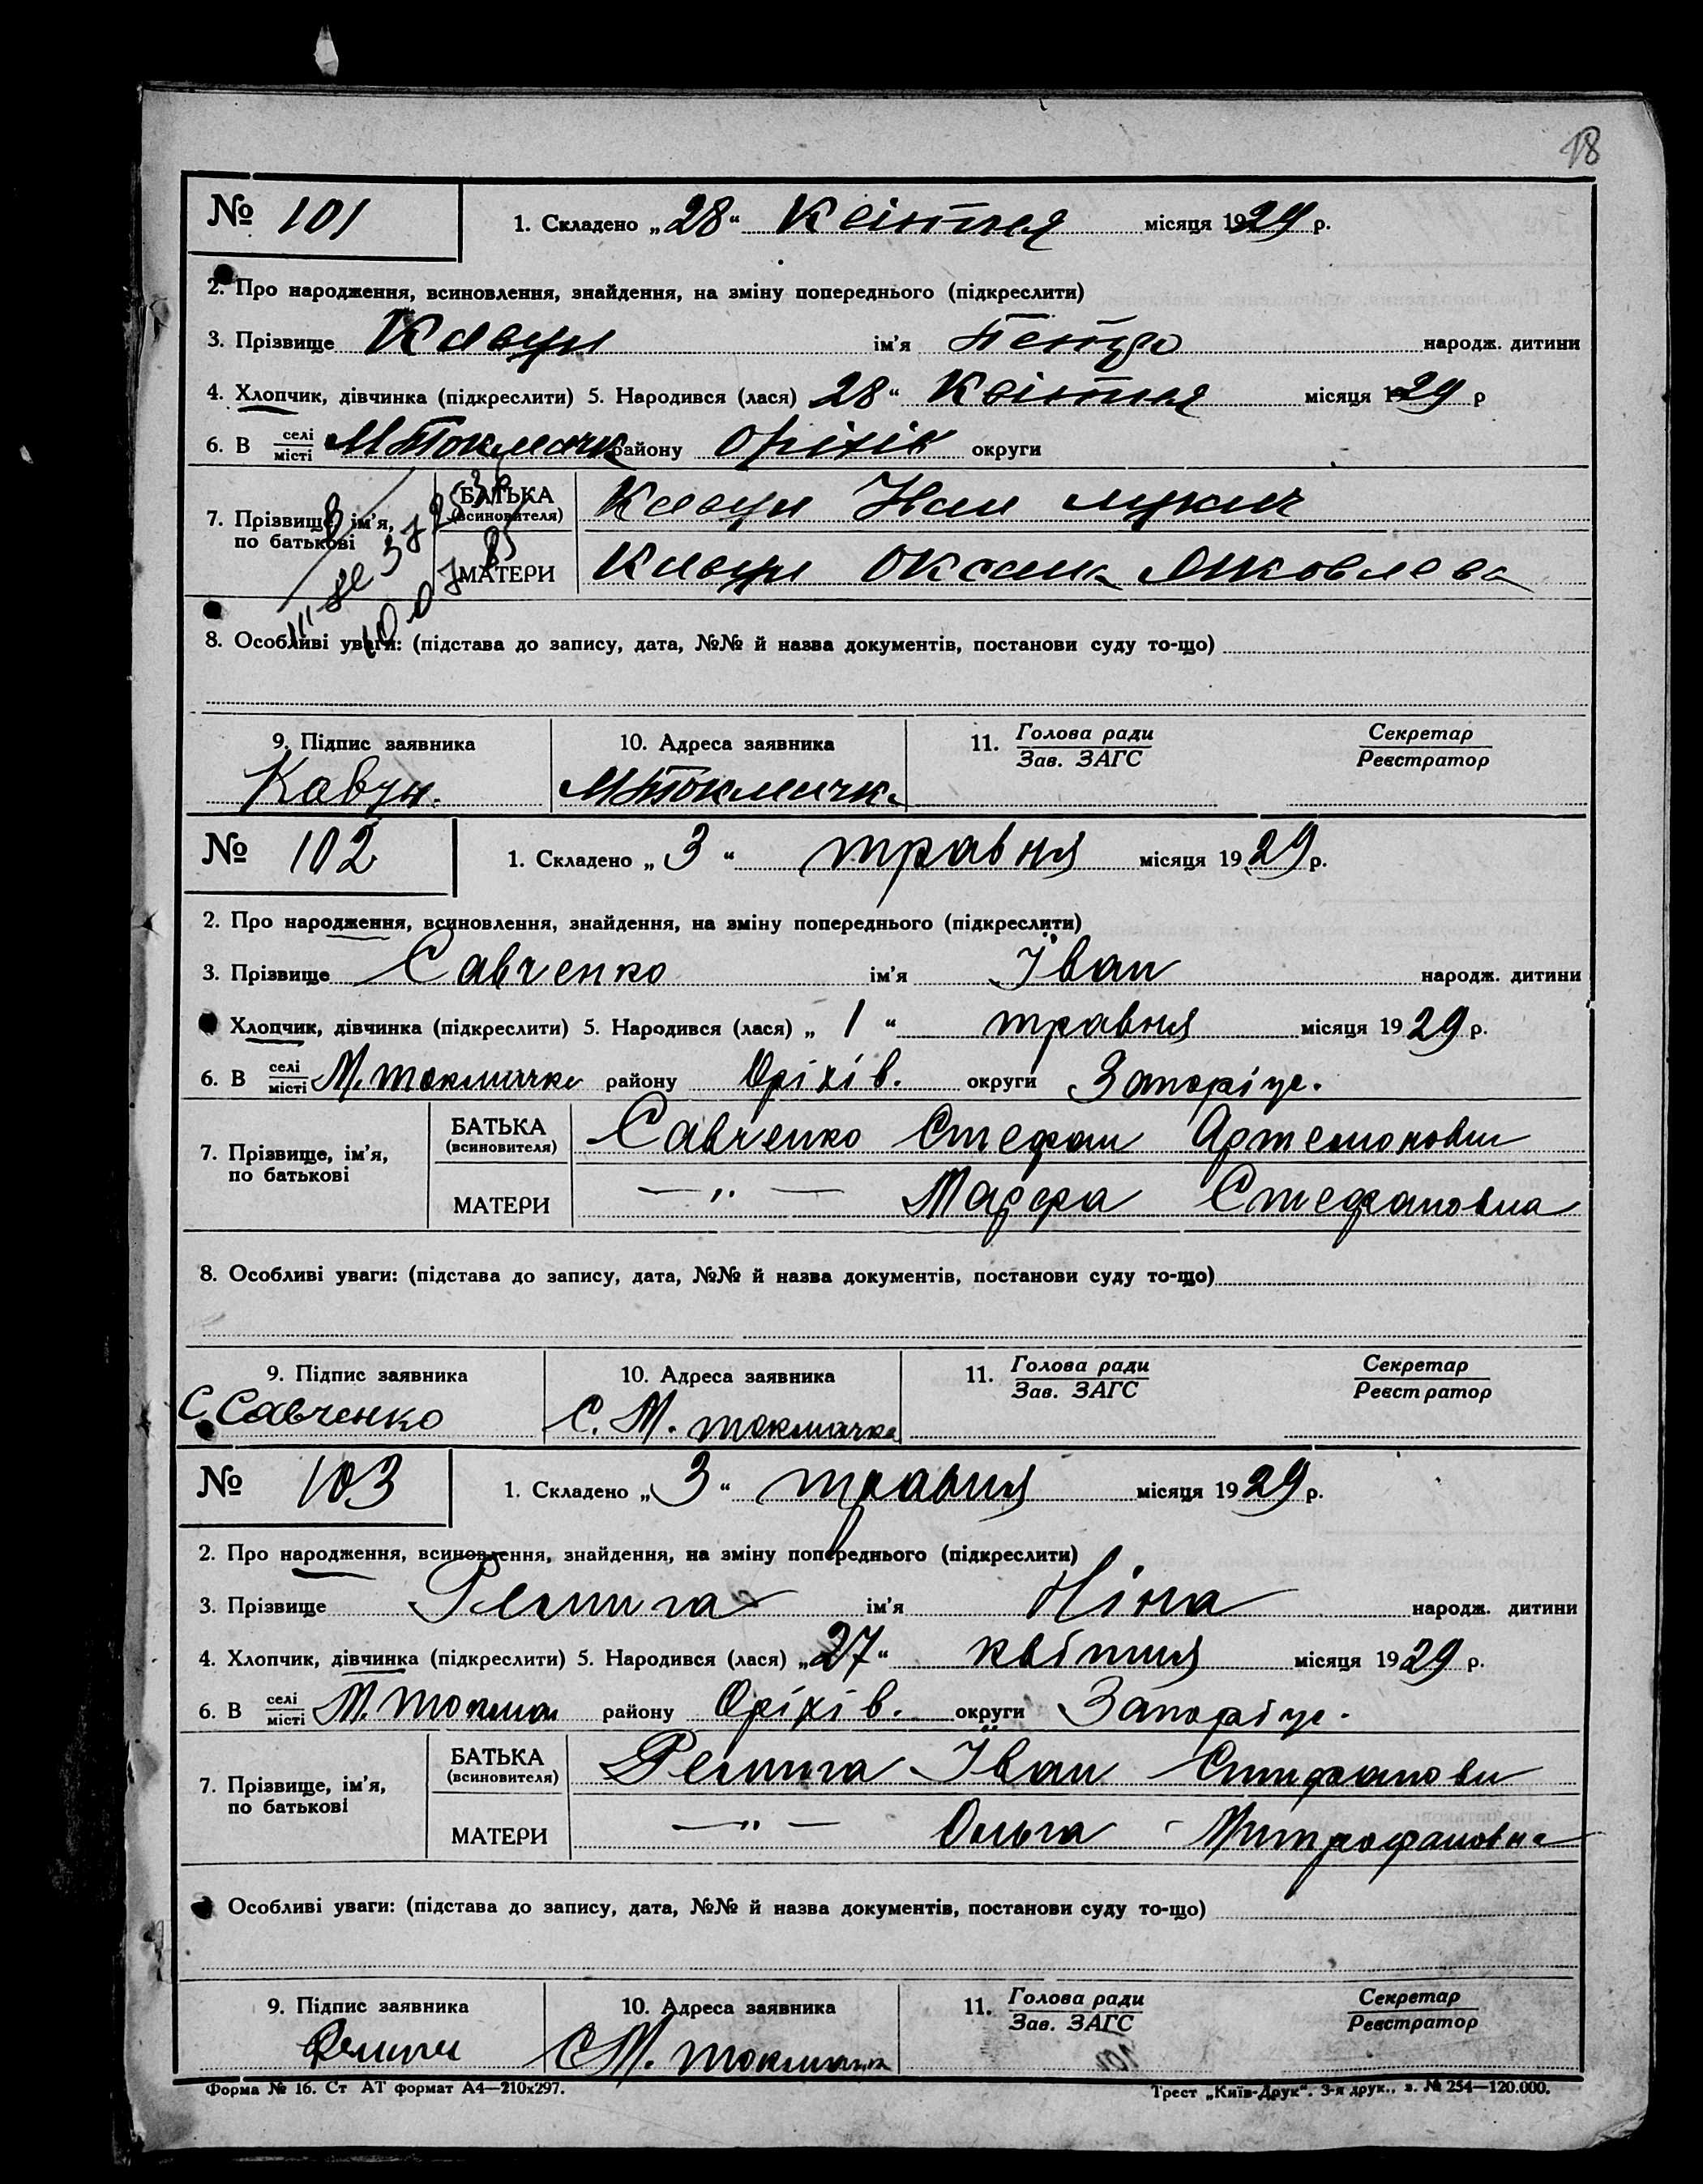 18
№ 101
1. Складено „28“ Квітня місяця 1929 р.
2. Про народження, всиновлення, знайдення, на зміну попереднього (підкреслити)
3. Прізвище Кавун ім'я Петро народж. дитини
4. Хлопчик, дівчинка (підкреслити) 5. Народився (лася) 28“ Квітня місяця 1929 р
6. В селі/місті М Токмачк району Оріхів округи
7. Прізвище, ім'я, по батькові
БАТЬКА (всиновителя) Кавун Іван
МАТЕРИ Кавун Оксана Яковлева
8. Особливі уваги: (підстава до запису, дата, №№ й назва документів, постанови суду то-що)
9. Підпис заявника 10. Адреса заявника 11. Голова ради/Зав. ЗАГС Секретар/Реєстратор
Кавун. М Токмачка
№ 102
1. Складено „3“ травня місяця 1929 р.
2. Про народження, всиновлення, знайдення, на зміну попереднього (підкреслити)
3. Прізвище Савченко ім'я Іван народж. дитини
Хлопчик, дівчинка (підкреслити) 5. Народився (лася) „1“ травня місяця 1929 р.
6. В селі/місті М. Токмачка району Оріхів. округи Запоріж.
7. Прізвище, ім'я, по батькові
БАТЬКА (всиновителя) Савченко Стефан Артемонови
МАТЕРИ —„— Марфа Стефановна
8. Особливі уваги: (підстава до запису, дата, №№ й назва документів, постанови суду то-що)
9. Підпис заявника 10. Адреса заявника 11. Голова ради/Зав. ЗАГС Секретар/Реєстратор
С. Савченко С. М. Токмачка
№ 103
1. Складено „3“ травня місяця 1929 р.
2. Про народження, всиновлення, знайдення, на зміну попереднього (підкреслити)
3. Прізвище ім'я Ніна народж. дитини
4. Хлопчик, дівчинка (підкреслити) 5. Народився (лася) „27“ квітня місяця 1929 р.
6. В селі/місті М. Токмач району Оріхів. округи Запоріж.
7. Прізвище, ім'я, по батькові
БАТЬКА (всиновителя) Іван Стифанови
МАТЕРИ —„— Ольга Митрофановна
Особливі уваги: (підстава до запису, дата, №№ й назва документів, постанови суду то-що)
9. Підпис заявника 10. Адреса заявника 11. Голова ради/Зав. ЗАГС Секретар/Реєстратор
С М. Токмачка
Форма № 16. Ст АТ формат А4—210х297. Трест „Київ-Друк“. 3-я друк., з. № 254—120.000.